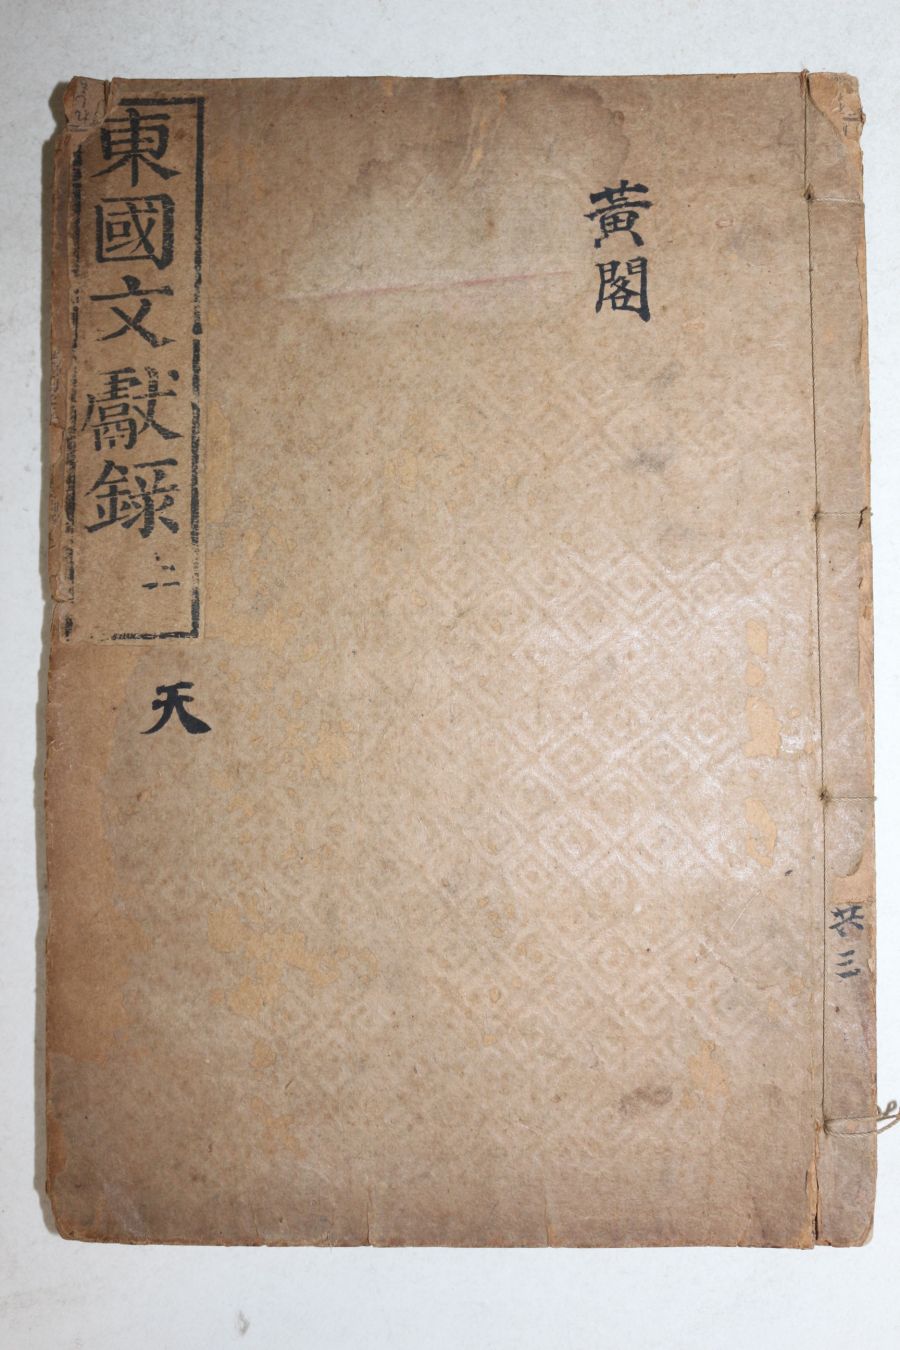 黃閣
東國文獻錄
天
共三